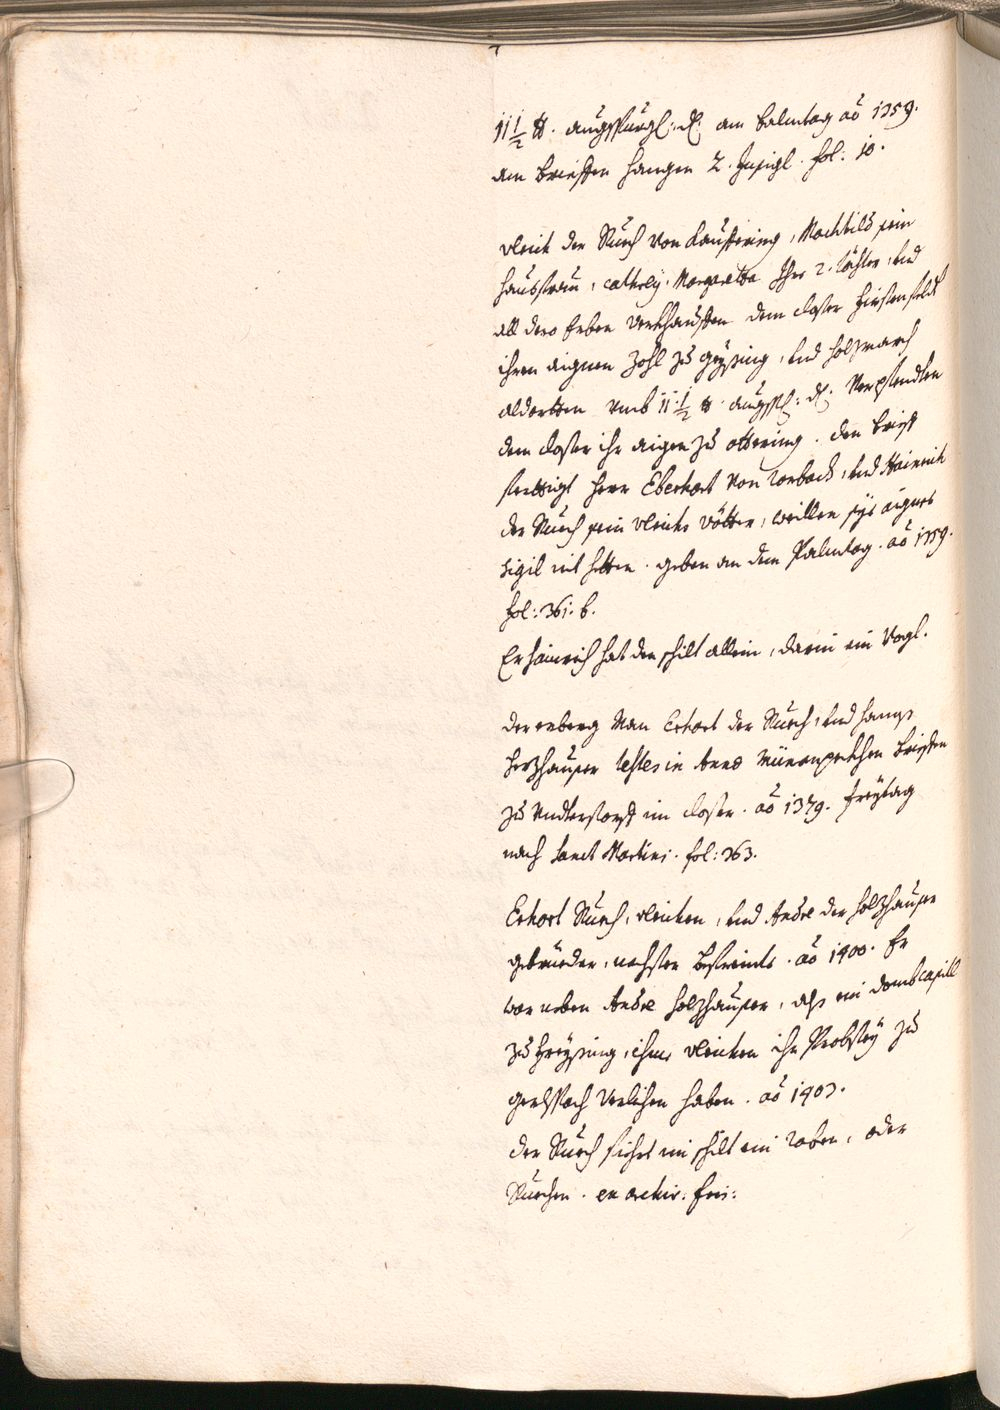 11 1/2 ℔. augspurg: ₰. am balmtag ao 1359.
am brieffen hangen 2. Insigl. fol: 10.
Vlrich der Ruech von Kauffering, Mechtild sein
hausfrau, Cathrey, Margretta Iher 2. töchter, und
all dero Erben verkhauffen dem closter Fürstenfeld
ihren aignen zohl zu geysing, und holzmarch
aldorten umb 11 1/2 ℔. augsp: ₰. Verpfendten
dem closter ihr aigen zu ottering. den brieff
fertigt herr Eberhart von Torbach, und Hainrich
der Ruech sein Vlrichs vötter, weillen sye aignes
sigil nit hetten. geben an dem Palmtag. ao 1359.
fol: 361. b.
Er hainrich hat den schilt allein, darin ein Vogl.
der erberg Man Erhart der Ruech, und hanns
herzhauser testes in Anno brieffen
zu Undterstorff im closter. ao 1379. freytag
nach sanct Martini. fol: 363.
Erhart Ruech, Vlrichen, und Andre der holzhauser
gebrüeder, nechster befreindt. ao 1400. Er
war neben Andre holzhauser, als ein dombcapitl
zu freysing, ihme Vlrichen ihr Probstey zu
verlihen haben. ao 1403.
der Ruech fiehrt im schilt ein raben, oder
Ruechen. ex archiv: fris: